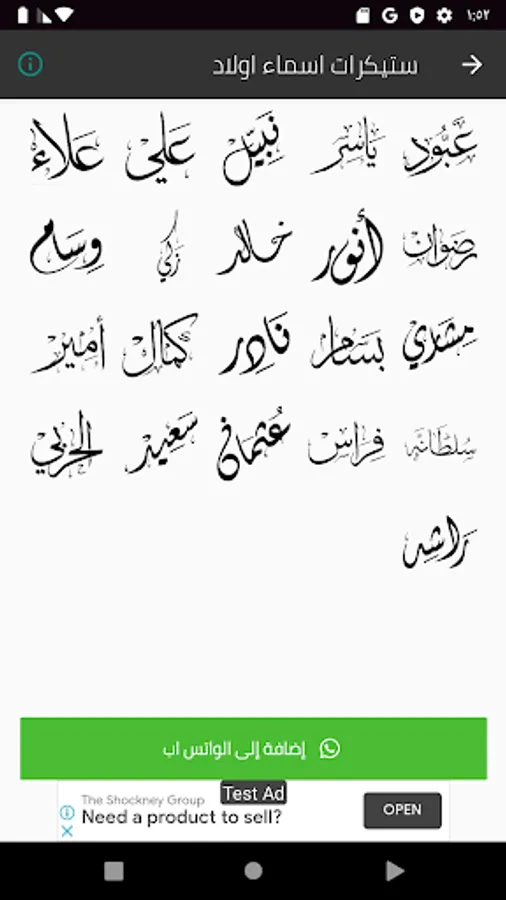 ١:٥٢
ستيكرات اسماء اولاد
عَبُّود يَاسِر نَبِيل عَلِي عَلَاء
رضوان أنور خالد زكي وسام
مشاري بسام نَادِر كمال أمير
سلطانه فراس عُثمان سَعِيد الحربي
رَاشِد
إضافة إلى الواتس اب
Test Ad
The Shockney Group
Need a product to sell?
OPEN